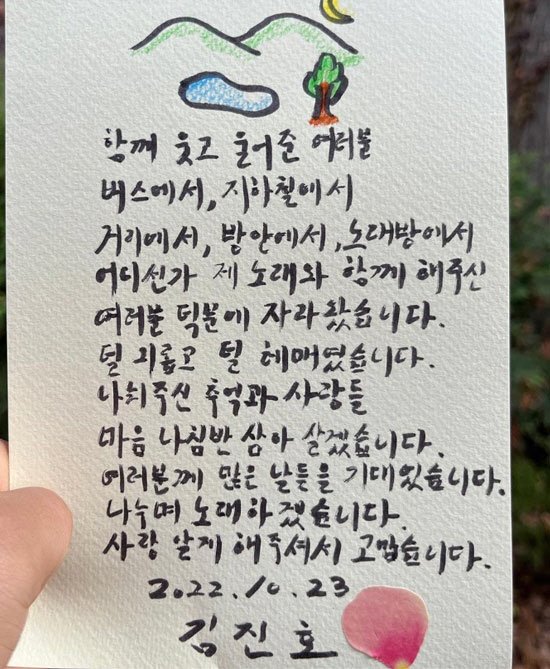 함께 웃고 울어준 여러분
버스에서, 지하철에서
거리에서, 방안에서, 노래방에서
어디선가 제 노래와 함께 해주신
여러분 덕분에 자라왔습니다.
덜 외롭고 덜 헤매였습니다.
나눠주신 추억과 사랑들
마음 나침반 삼아 살겠습니다.
여러분께 많은 날들을 기대있습니다.
나누며 노래하겠습니다.
사랑 알게 해주셔서 고맙습니다.
2022.10.23
김진호